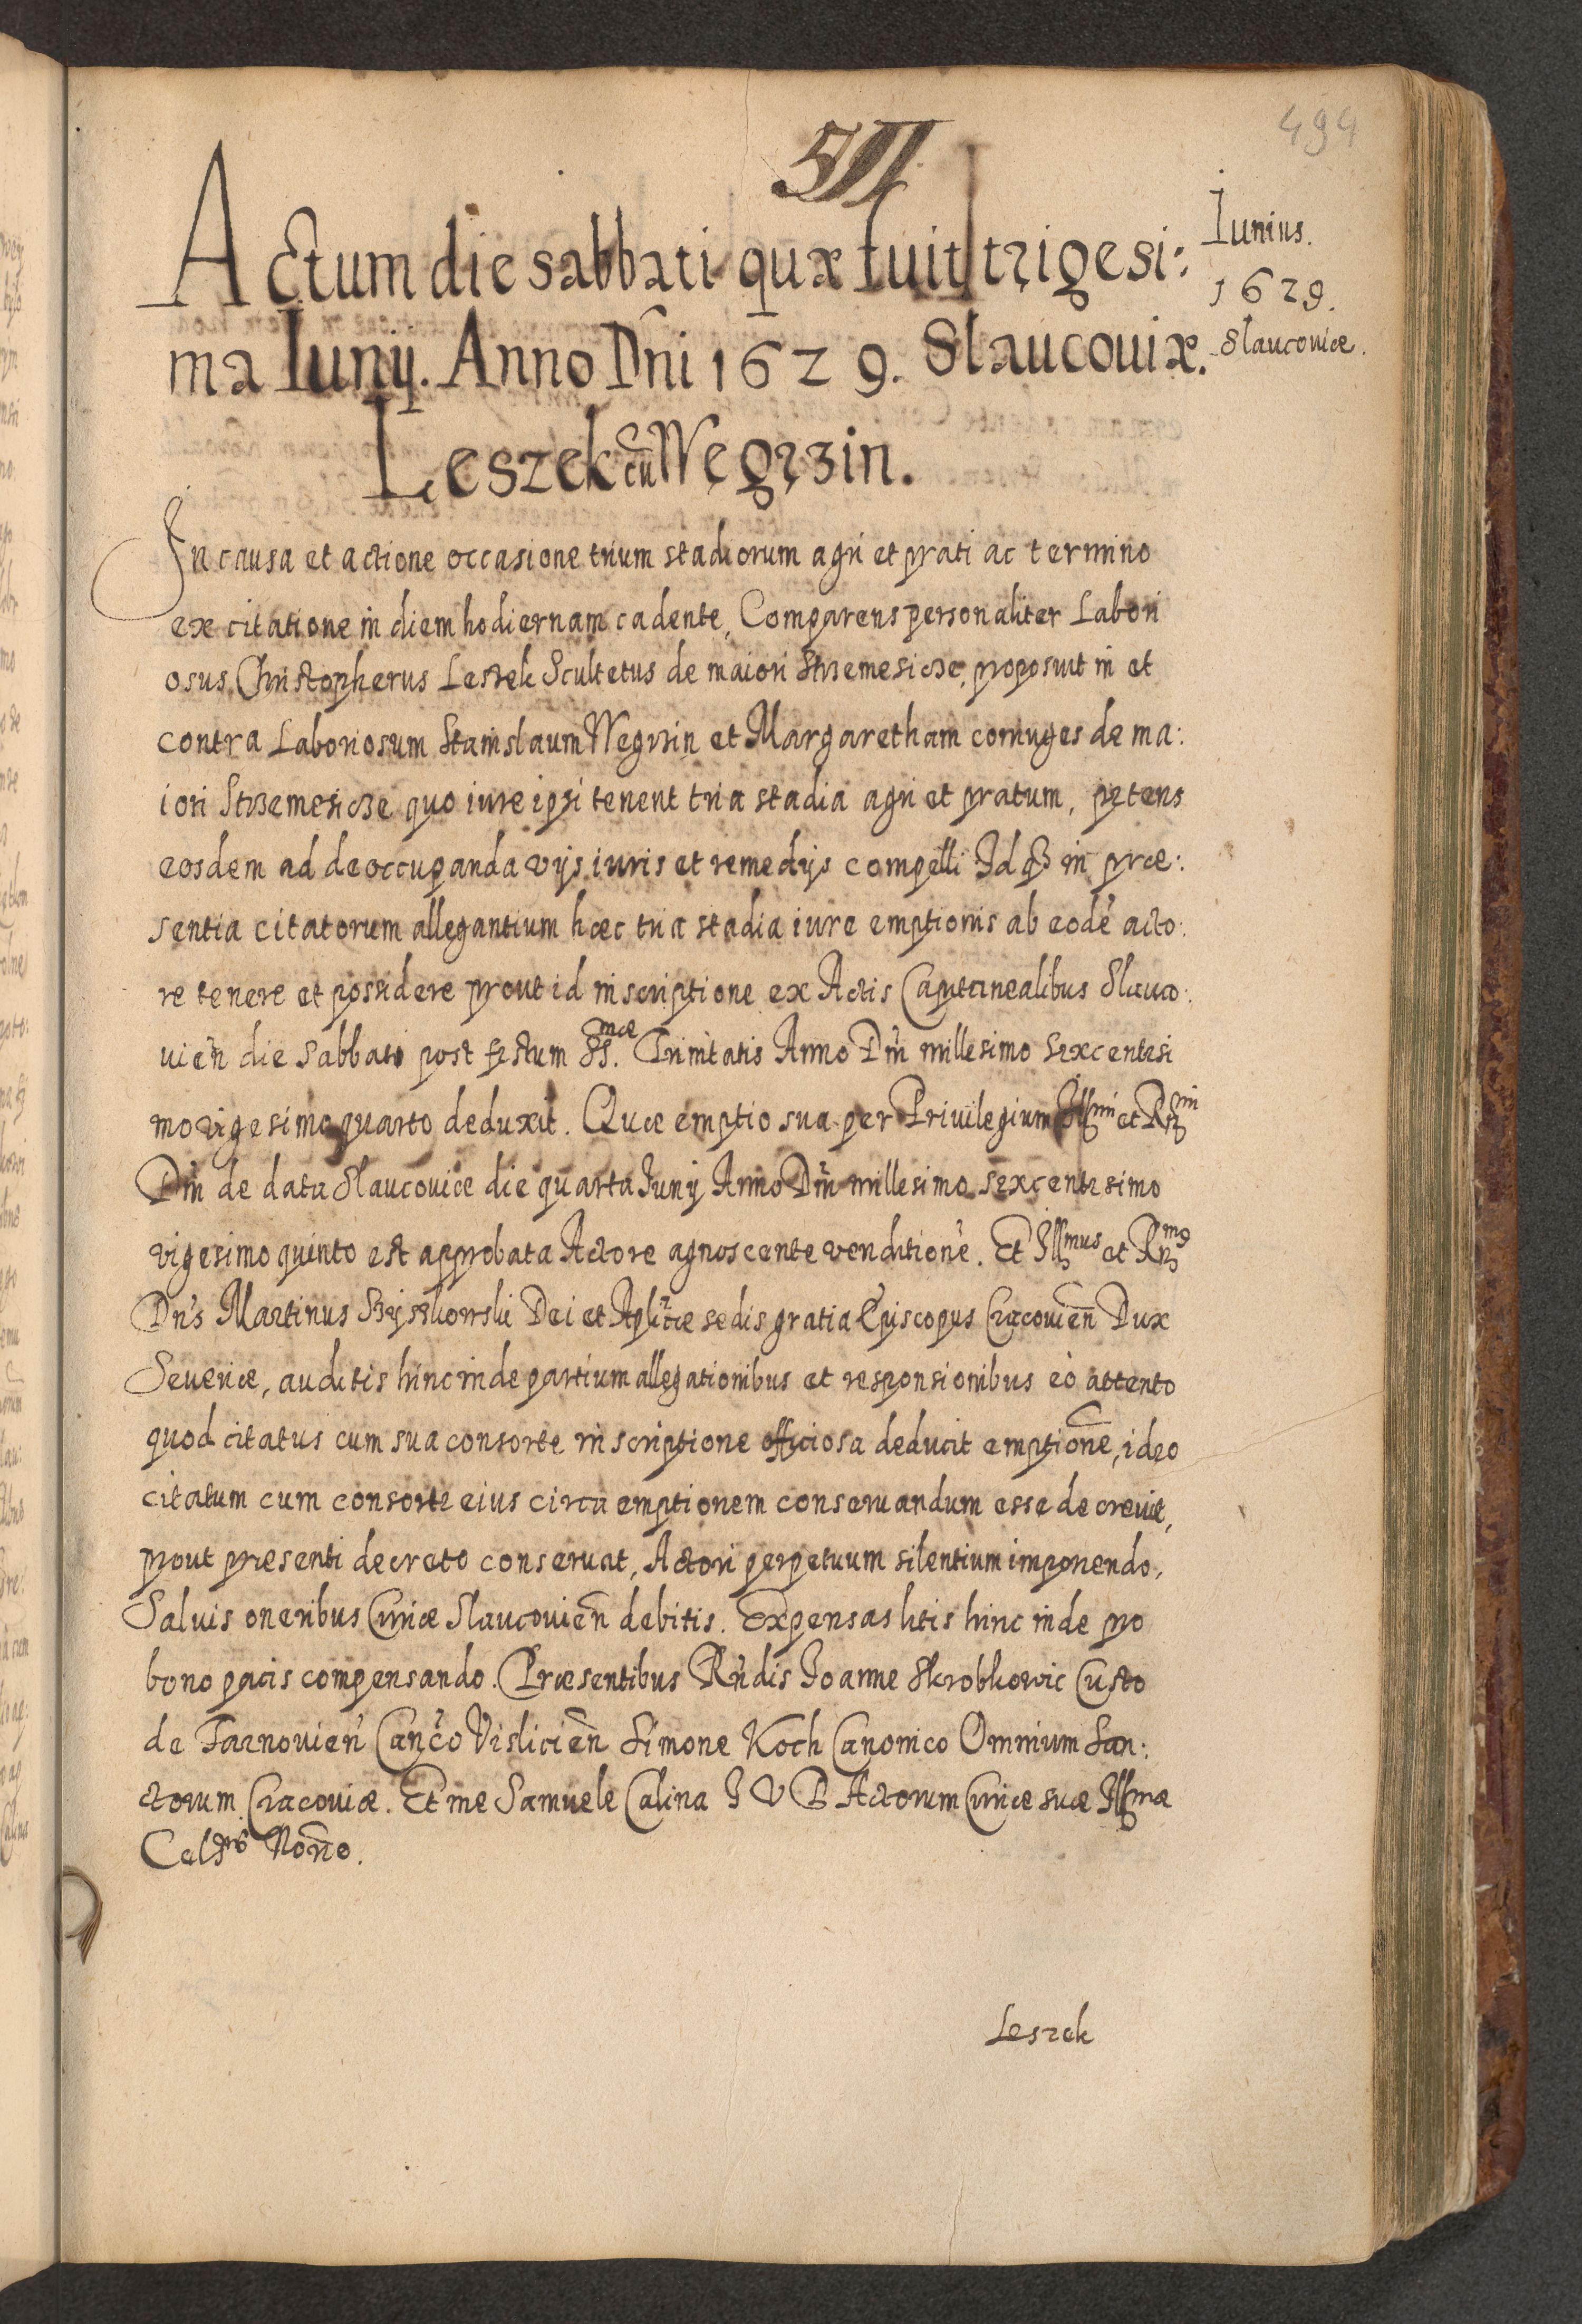 494
511
Iunius.
1629.
Slaucouiæ.
Actum die sabbati quæ fuit trigesi:
ma Iunÿ. Anno Dñi 1629. Slaucouiæ.
Leszek cũ Węgrzin.
In causa et actione occasione trium stadiorum agri et prati ac termino
ex citatione in diem hodiernam cadente, Comparens personaliter Labori
osus Christopherus Leszek Scultetus de maiori Strzemesicze, proposuit in et
contra Laboriosum Stanislaum Wegrzin et Margaretham coniuges de ma:
iori Strzemesicze quo iure ipsi tenent tria stadia agri et pratum, petens
eosdem ad deoccupanda vijs iuris et remedijs compelli Id in præ:
sentia citatorum allegantium hæc tria stadia iure emptionis ab eodẽ acto:
re tenere et possidere prout id inscriptione ex Actis Capitanealibus Slauco:
uieñ die Sabbato post festum SS.mæ Trinitatis Anno Dñi millesimo sexcentesi
mo vigesimo quarto deduxit. Quæ emptio sua per Priuilegium Illmi et Rmi
Dñi de data Slaucouiæ die quarta Iunÿ Anno Dñi millesimo sexcentesimo
vigesimo quinto est approbata Actore agnoscente venditionẽ. Et Illmus et Rm9
Dñs Martinus Szyszkowski Dei et Aplicæ sedis gratia Episcopus Cracouieñ Dux
Seueriæ, auditis hinc inde partium allegationibus et responsionibus eò attento
quod citatus cum sua consorte inscriptione officiosa deducit emptionẽ, ideo
citatum cum consorte eius circa emptionem conseruandum esse decreuit,
prout præsenti decreto conseruat, Actori perpetuum silentium imponendo,
Saluis oneribus Curiæ Slaucouieñ debitis. Expensas litis hinc inde pro
bono pacis compensando. Præsentibus Rñdis Ioanne Skrobkowic Custo
de Tarnouieñ Cañco Vislicieñ Simone Koch Canonico Omnium San:
ctorum Cracouiæ. Et me Samuele Calina I V D Actorum Curiæ suæ Illmæ
Celsnis Noño.
Leszek